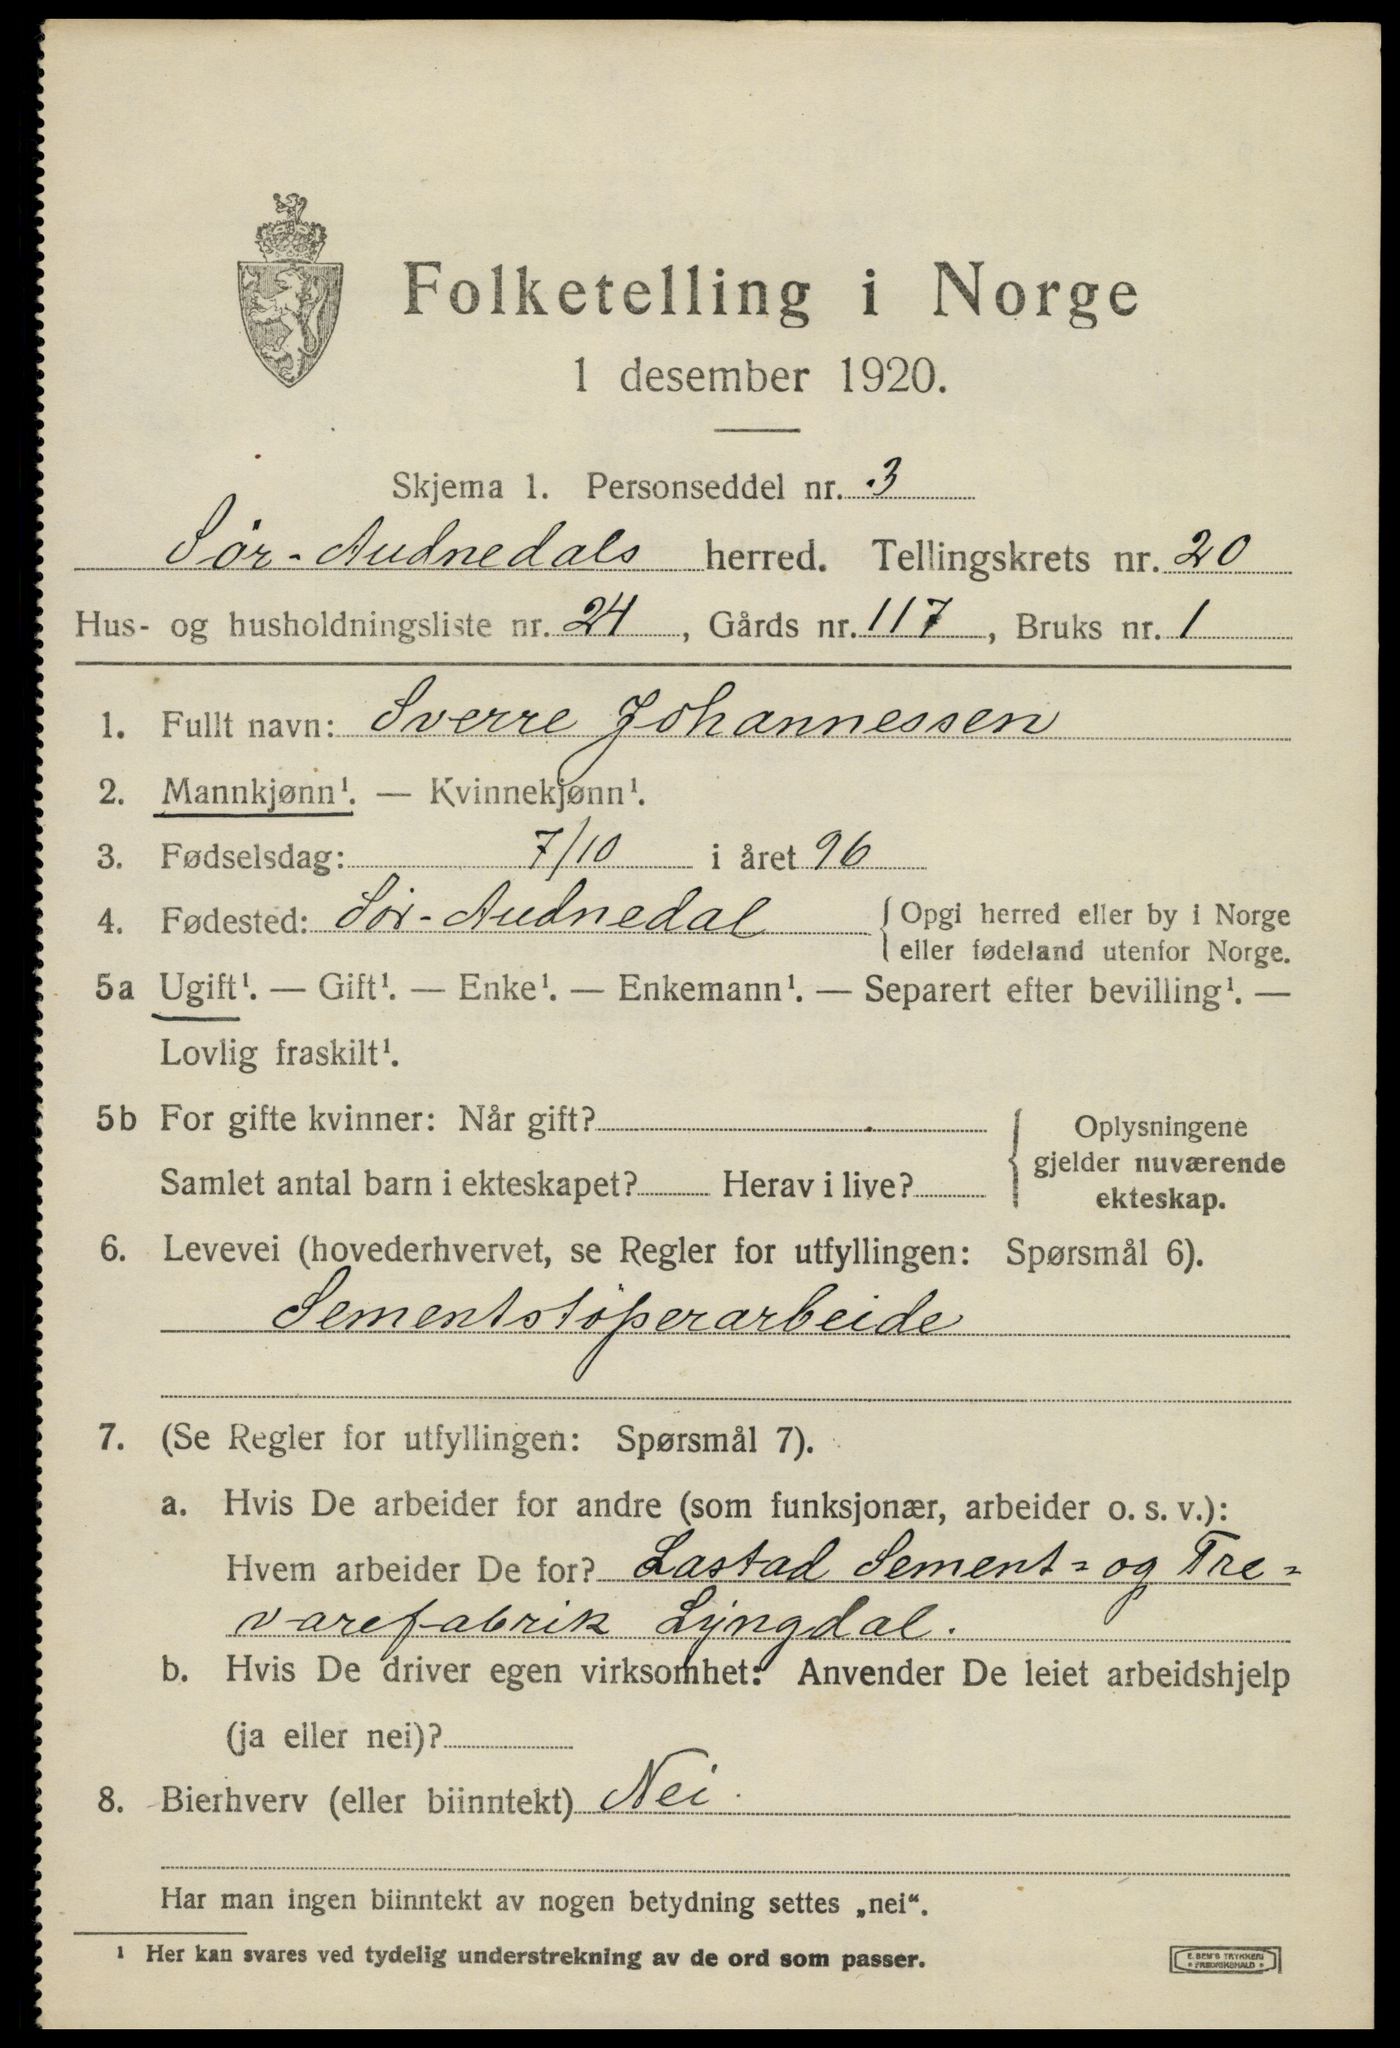 Folketelling i Norge
1 desember 1920.
Skjema 1. Personseddel nr. 3
Sør-Audnedals herred. Tellingskrets nr. 20
Hus- og husholdningsliste nr. 24, Gårds nr. 117, Bruks nr. 1
1. Fullt navn: Sverre Johannessen
2. Mannkjønn¹. — Kvinnekjønn¹.
3. Fødselsdag: 7/10 i året 96
4. Fødested: Sør-Audnedal { Opgi herred eller by i Norge
eller fødeland utenfor Norge.
5a Ugift¹. — Gift¹. — Enke¹. — Enkemann¹. — Separert efter bevilling¹. —
Lovlig fraskilt¹.
5b For gifte kvinner: Når gift?
Samlet antal barn i ekteskapet? Herav i live?
{ Oplysningene
gjelder nuværende
ekteskap.
6. Levevei (hovederhvervet, se Regler for utfyllingen: Spørsmål 6).
Sementstöperarbeide
7. (Se Regler for utfyllingen: Spørsmål 7).
a. Hvis De arbeider for andre (som funksjonær, arbeider o. s. v.):
Hvem arbeider De for? Lastad Sement= og Tre=
varefabrik Lyngdal.
b. Hvis De driver egen virksomhet: Anvender De leiet arbeidshjelp
(ja eller nei)?
8. Bierhverv (eller biinntekt) Nei.
Har man ingen biinntekt av nogen betydning settes „nei“.
¹ Her kan svares ved tydelig understrekning av de ord som passer.
E. SEM'S TRYKKERI
* FREDRIKSHALD *